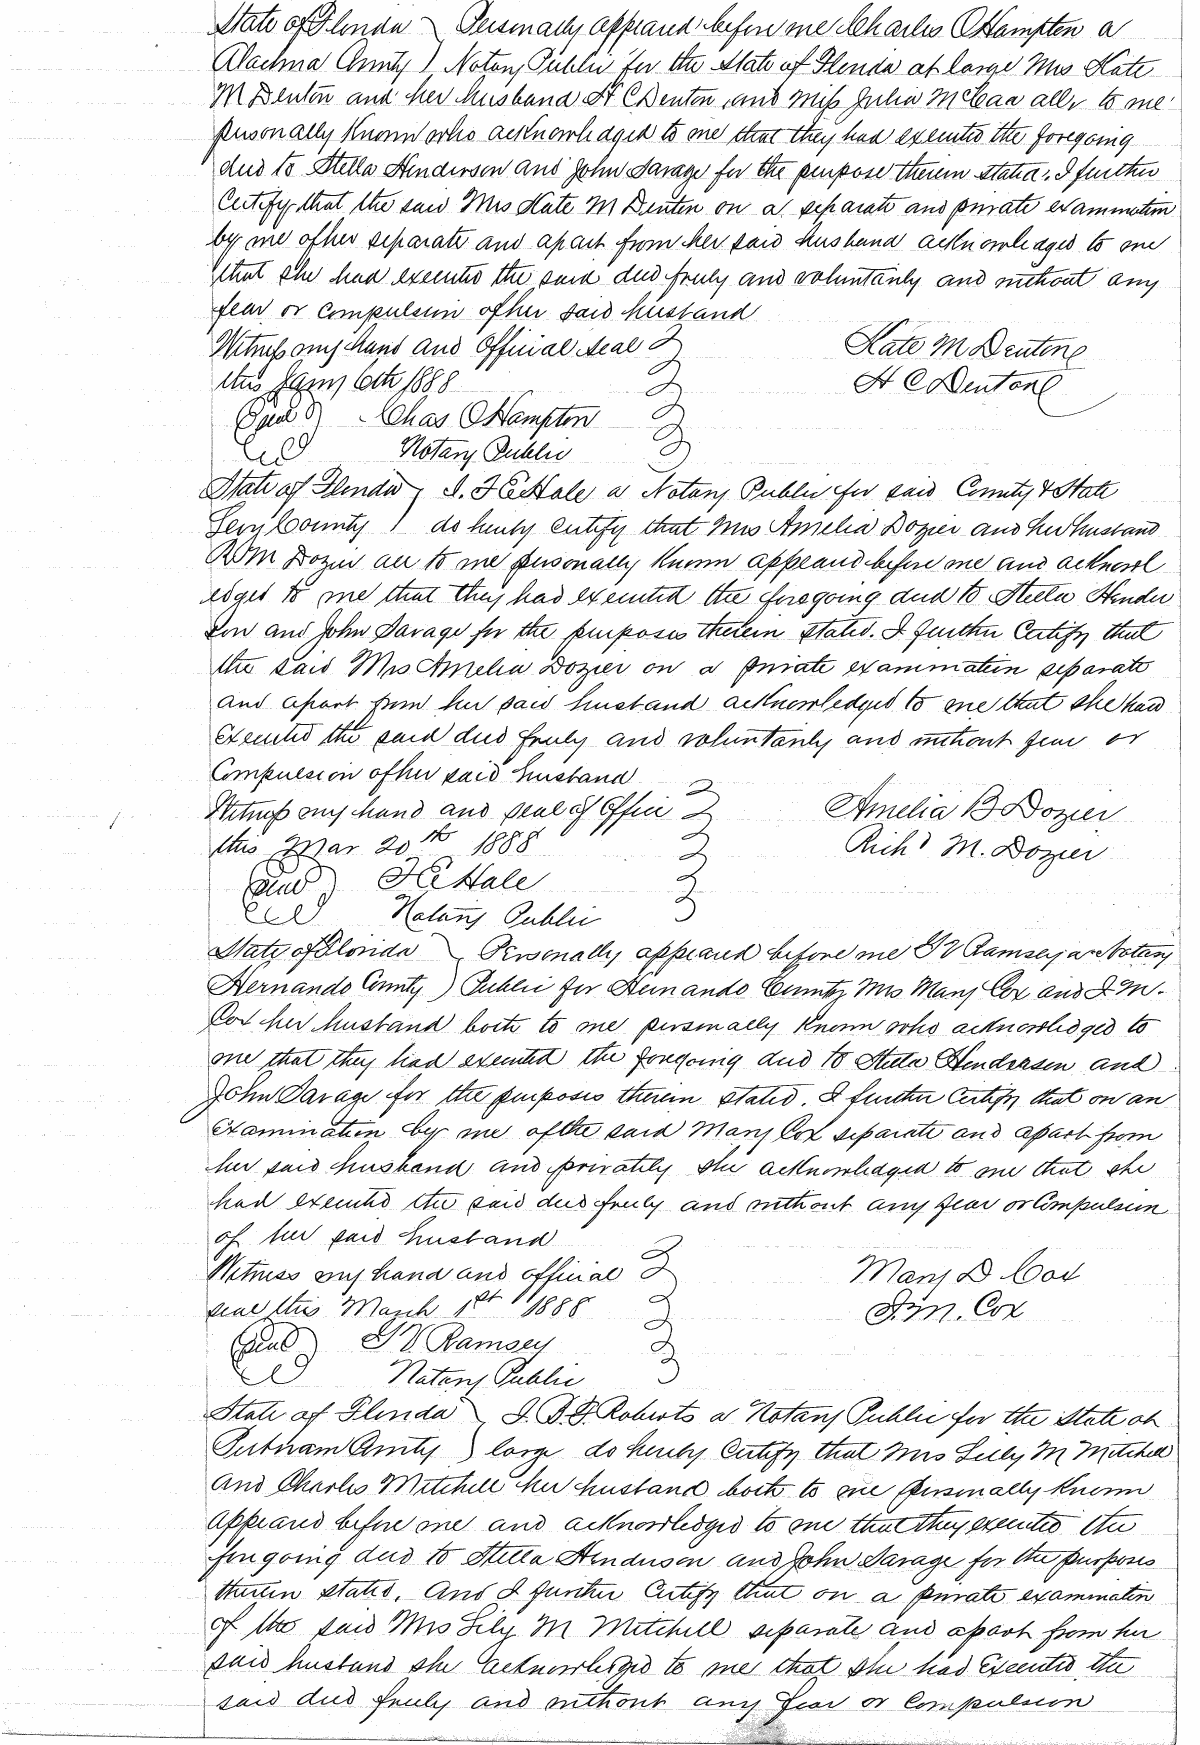 State of Florida } Personally appeared before me Charles O Hampton a
Alachua County } Notary Public for the State of Florida at large Mrs Kate
M Denton and her husband H C Denton, and Miss Julia McCaa all to me
personally known who acknowledged to me that they had executed the foregoing
deed to Stella Henderson and John Savage for the purpose therein stated. I further
Certify that the said Mrs Kate M Denton on a separate and private examination
by me of her separate and apart from her said husband acknowledged to me
that she had executed the said deed freely and voluntarily and without any
fear or compulsion of her said husband
Witness my hand and Official seal } Kate M Denton
this Jany 6th 1888 } H C Denton
(Seal) Chas O Hampton }
Notary Public }
State of Florida } I. F E Hale a Notary Public for said County & State
Levy County } do hereby certify that Mrs Amelia Dozier and her husband
R M Dozier all to me personally known appeared before me and acknowl
edged to me that they had executed the foregoing deed to Stella Hender
son and John Savage for the purposes therein stated. I further Certify that
the said Mrs Amelia Dozier on a private examination separate
and apart from her said husband acknowledged to me that she had
executed the said deed freely and voluntarily and without fear or
Compulsion of her said husband
Witness my hand and seal of Office } Amelia B Dozier
this Mar 20th 1888 } Richd M. Dozier
(Seal) F E Hale }
Notary Public }
State of Florida } Personally appeared before me G V Ramsey a Notary
Hernando County } Public for Hernando County Mrs Mary Cox and J. M.
Cox her husband both to me personally known who acknowledged to
me that they had executed the foregoing deed to Stella Henderson and
John Savage for the purposes therein stated. I further Certify that on an
examination by me of the said Mary Cox separate and apart from
her said husband and privately she acknowledged to me that she
had executed the said deed freely and without any fear or Compulsion
of her said husband
Witness my hand and official } Mary D Cox
seal this March 1st 1888 } J. M. Cox
(Seal) G V Ramsey }
Notary Public }
State of Florida } I. B. F. Roberts a Notary Public for the State at
Putnam County } large do hereby Certify that Mrs Lilly M Mitchell
and Charles Mitchell her husband both to me personally known
appeared before me and acknowledged to me that they executed the
foregoing deed to Stella Henderson and John Savage for the purposes
therein stated. And I further Certify that on a private examination
of the said Mrs Lily M Mitchell separate and apart from her
said husband she acknowledged to me that she had executed the
said deed freely and without any fear or Compulsion